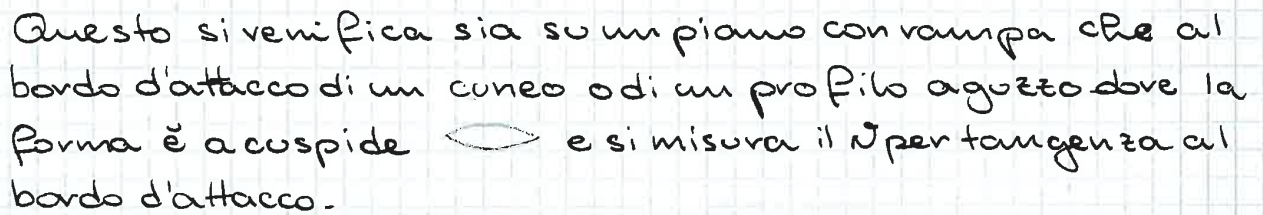 Questo si verifica sia su un piano con rampa che al
bordo d'attacco di un cuneo o di un profilo aguzzo dove la
forma è a cuspide e si misura il ϑ per tangenza al
bordo d'attacco.